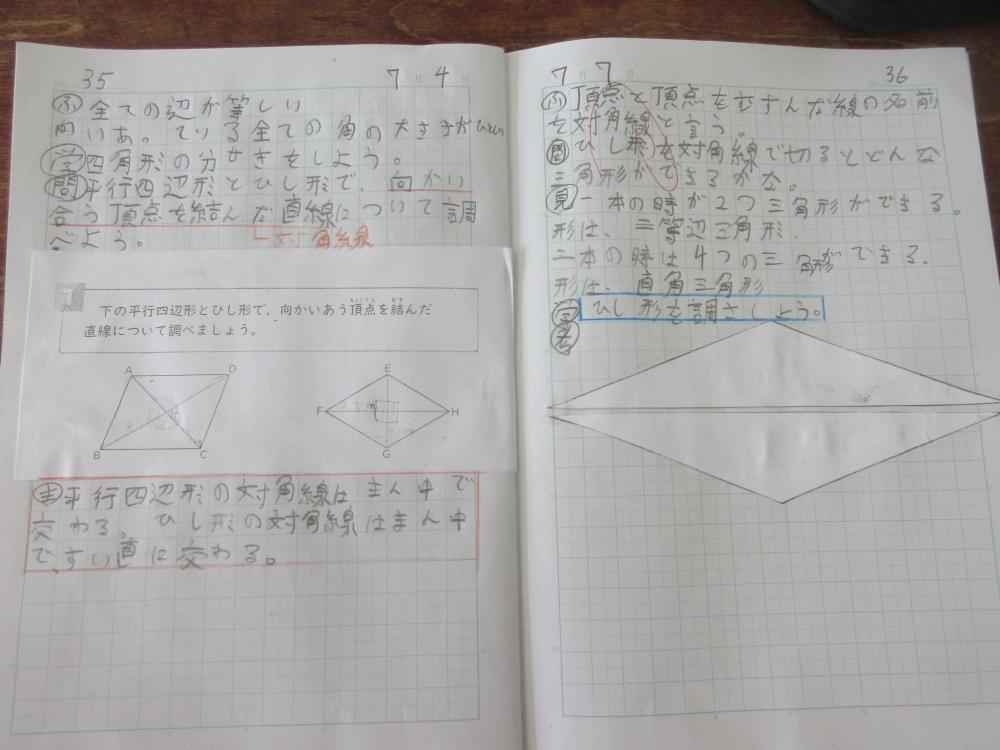 35 7月4日
ふ 全ての辺が等しい
向いあっている全ての角の大きさがひとしい
学 四角形の分せきをしよう。
問 平行四辺形とひし形で、向かい
合う頂点を結んだ直線について調
べよう。
対角線
1
下の平行四辺形とひし形で、向かいあう頂点を結んだ
直線について調べましょう。
ちょうてん むす
A D
B C
E
F H
G
ま 平行四辺形の対角線はまん中で
交わる。ひし形の対角線はまん中
で、すい直に交わる。
7月7日 36
ふ 頂点と頂点をむすんだ線の名前
を対角線と言う。
問 ひし形を対角線で切るとどんな
三角形ができるかな。
見 一本の時が2つ三角形ができる。
形は、二等辺三角形.
二本の時は4つの三角形ができる.
形は、直角三角形
学 ひし形を調さしよう。
考